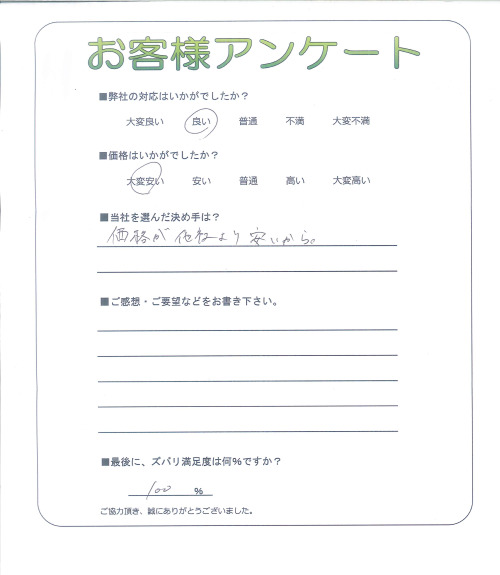 お客様アンケート
■弊社の対応はいかがでしたか？
大変良い 良い 普通 不満 大変不満
■価格はいかがでしたか？
大変安い 安い 普通 高い 大変高い
■当社を選んだ決め手は？
価格が他社より安いから。
■ご感想・ご要望などをお書き下さい。
■最後に、ズバリ満足度は何％ですか？
100 ％
ご協力頂き、誠にありがとうございました。